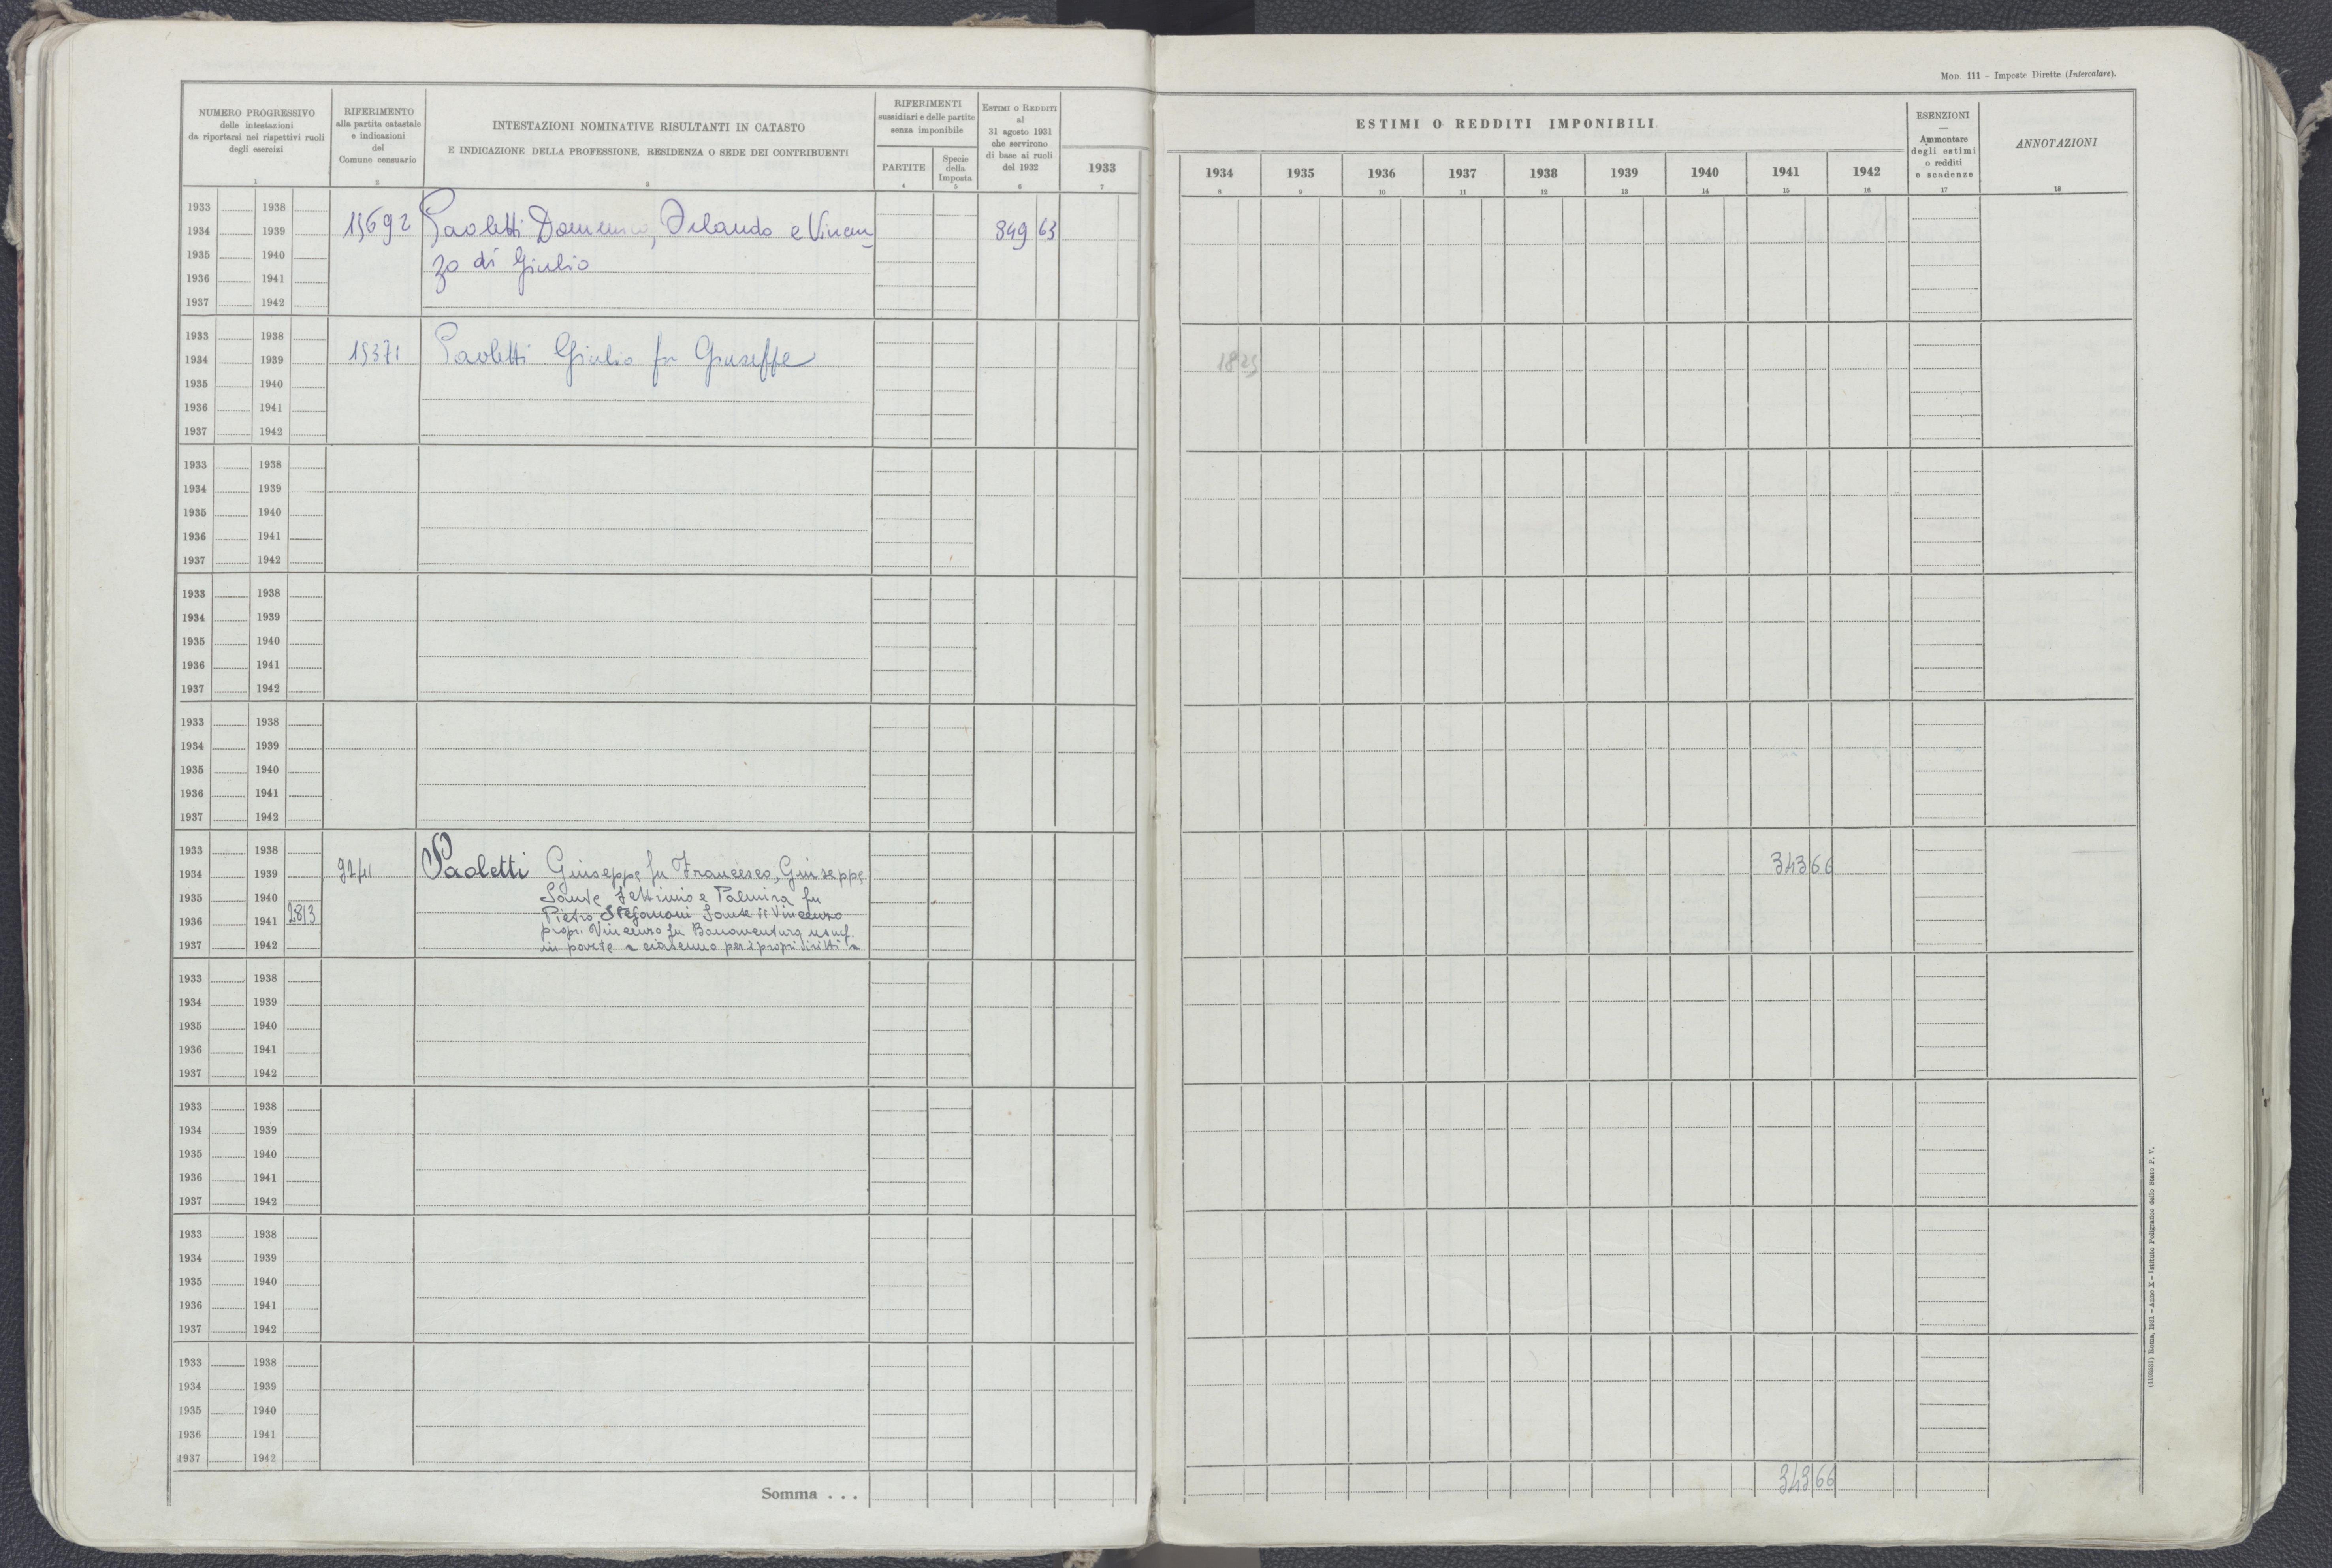 MOD. 111 - Imposte Dirette (Intercalare).
NUMERO PROGRESSIVO
delle intestazioni
da riportarsi nei rispettivi ruoli
degli esercizi
1
RIFERIMENTO
alla partita catastale
e indicazioni
del
Comune censuario
2
INTESTAZIONI NOMINATIVE RISULTANTI IN CATASTO
E INDICAZIONE DELLA PROFESSIONE, RESIDENZA O SEDE DEI CONTRIBUENTI
3
RIFERIMENTI
sussidiari e delle partite
senza imponibile
PARTITE
4
Specie
della
Imposta
5
ESTIMI O REDDITI
al
31 agosto 1931
che servirono
di base ai ruoli
del 1932
6
1933
7
ESTIMI O REDDITI IMPONIBILI
1934 1935 1936 1937 1938 1939 1940 1941 1942
8 9 10 11 12 13 14 15 16
ESENZIONI
—
Ammontare
degli estimi
o redditi
e scadenze
17
ANNOTAZIONI
18
1933 1938
1934 1939 15692 Paoletti Domenico, Orlando e Vincen- 849 63
1935 1940 zo di Giulio
1936 1941
1937 1942
1933 1938
1934 1939 15371 Paoletti Giulio fu Giuseppe
1935 1940
1936 1941
1937 1942
1933 1938
1934 1939
1935 1940
1936 1941
1937 1942
1933 1938
1934 1939
1935 1940
1936 1941
1937 1942
1933 1938
1934 1939
1935 1940
1936 1941
1937 1942
1933 1938
1934 1939 9241 Paoletti Giuseppe fu Francesco, Giuseppe 343 66
1935 1940 Sante Settimio e Palmira fu
1936 1941 2813 Pietro, Stefanoni Sante di Vincenzo
propri. Vincenzo fu Bonaventura usuf.
1937 1942 in parte e ciascuno per i propri diritti
1933 1938
1934 1939
1935 1940
1936 1941
1937 1942
1933 1938
1934 1939
1935 1940
1936 1941
1937 1942
1933 1938
1934 1939
1935 1940
1936 1941
1937 1942
1933 1938
1934 1939
1935 1940
1936 1941
1937 1942
Somma . . . 343 66
Roma, 1931 - Anno X - Istituto Poligrafico dello Stato P. V.